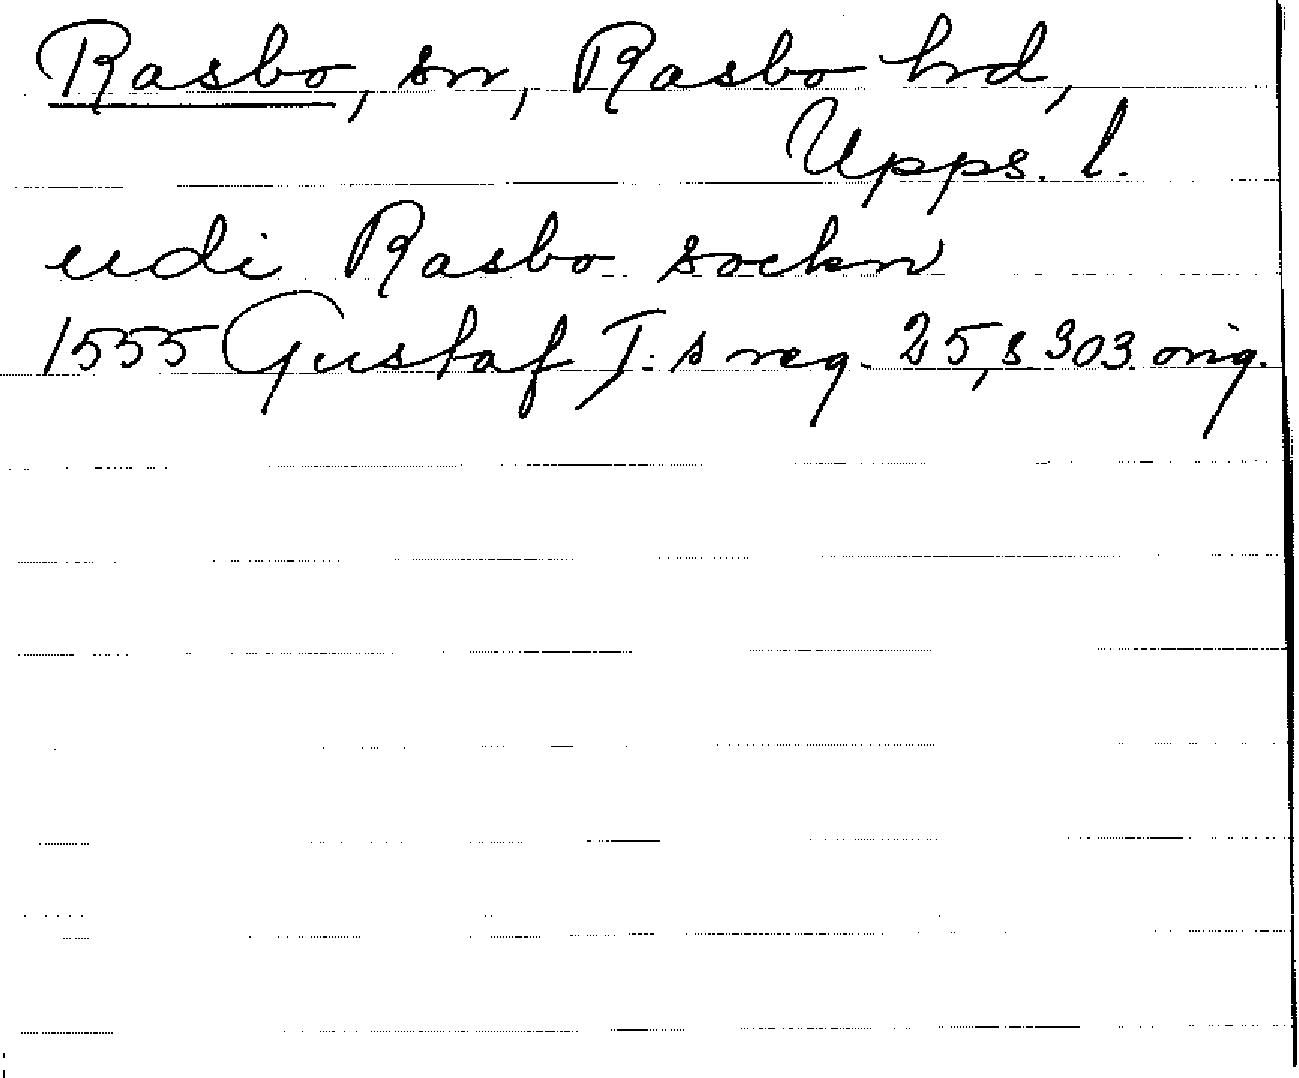 Rasbo, sn, Rasbo hd,
Upps. l.
udi Rasbo sockn
1555 Gustaf I:s reg. 25, s 303 orig.